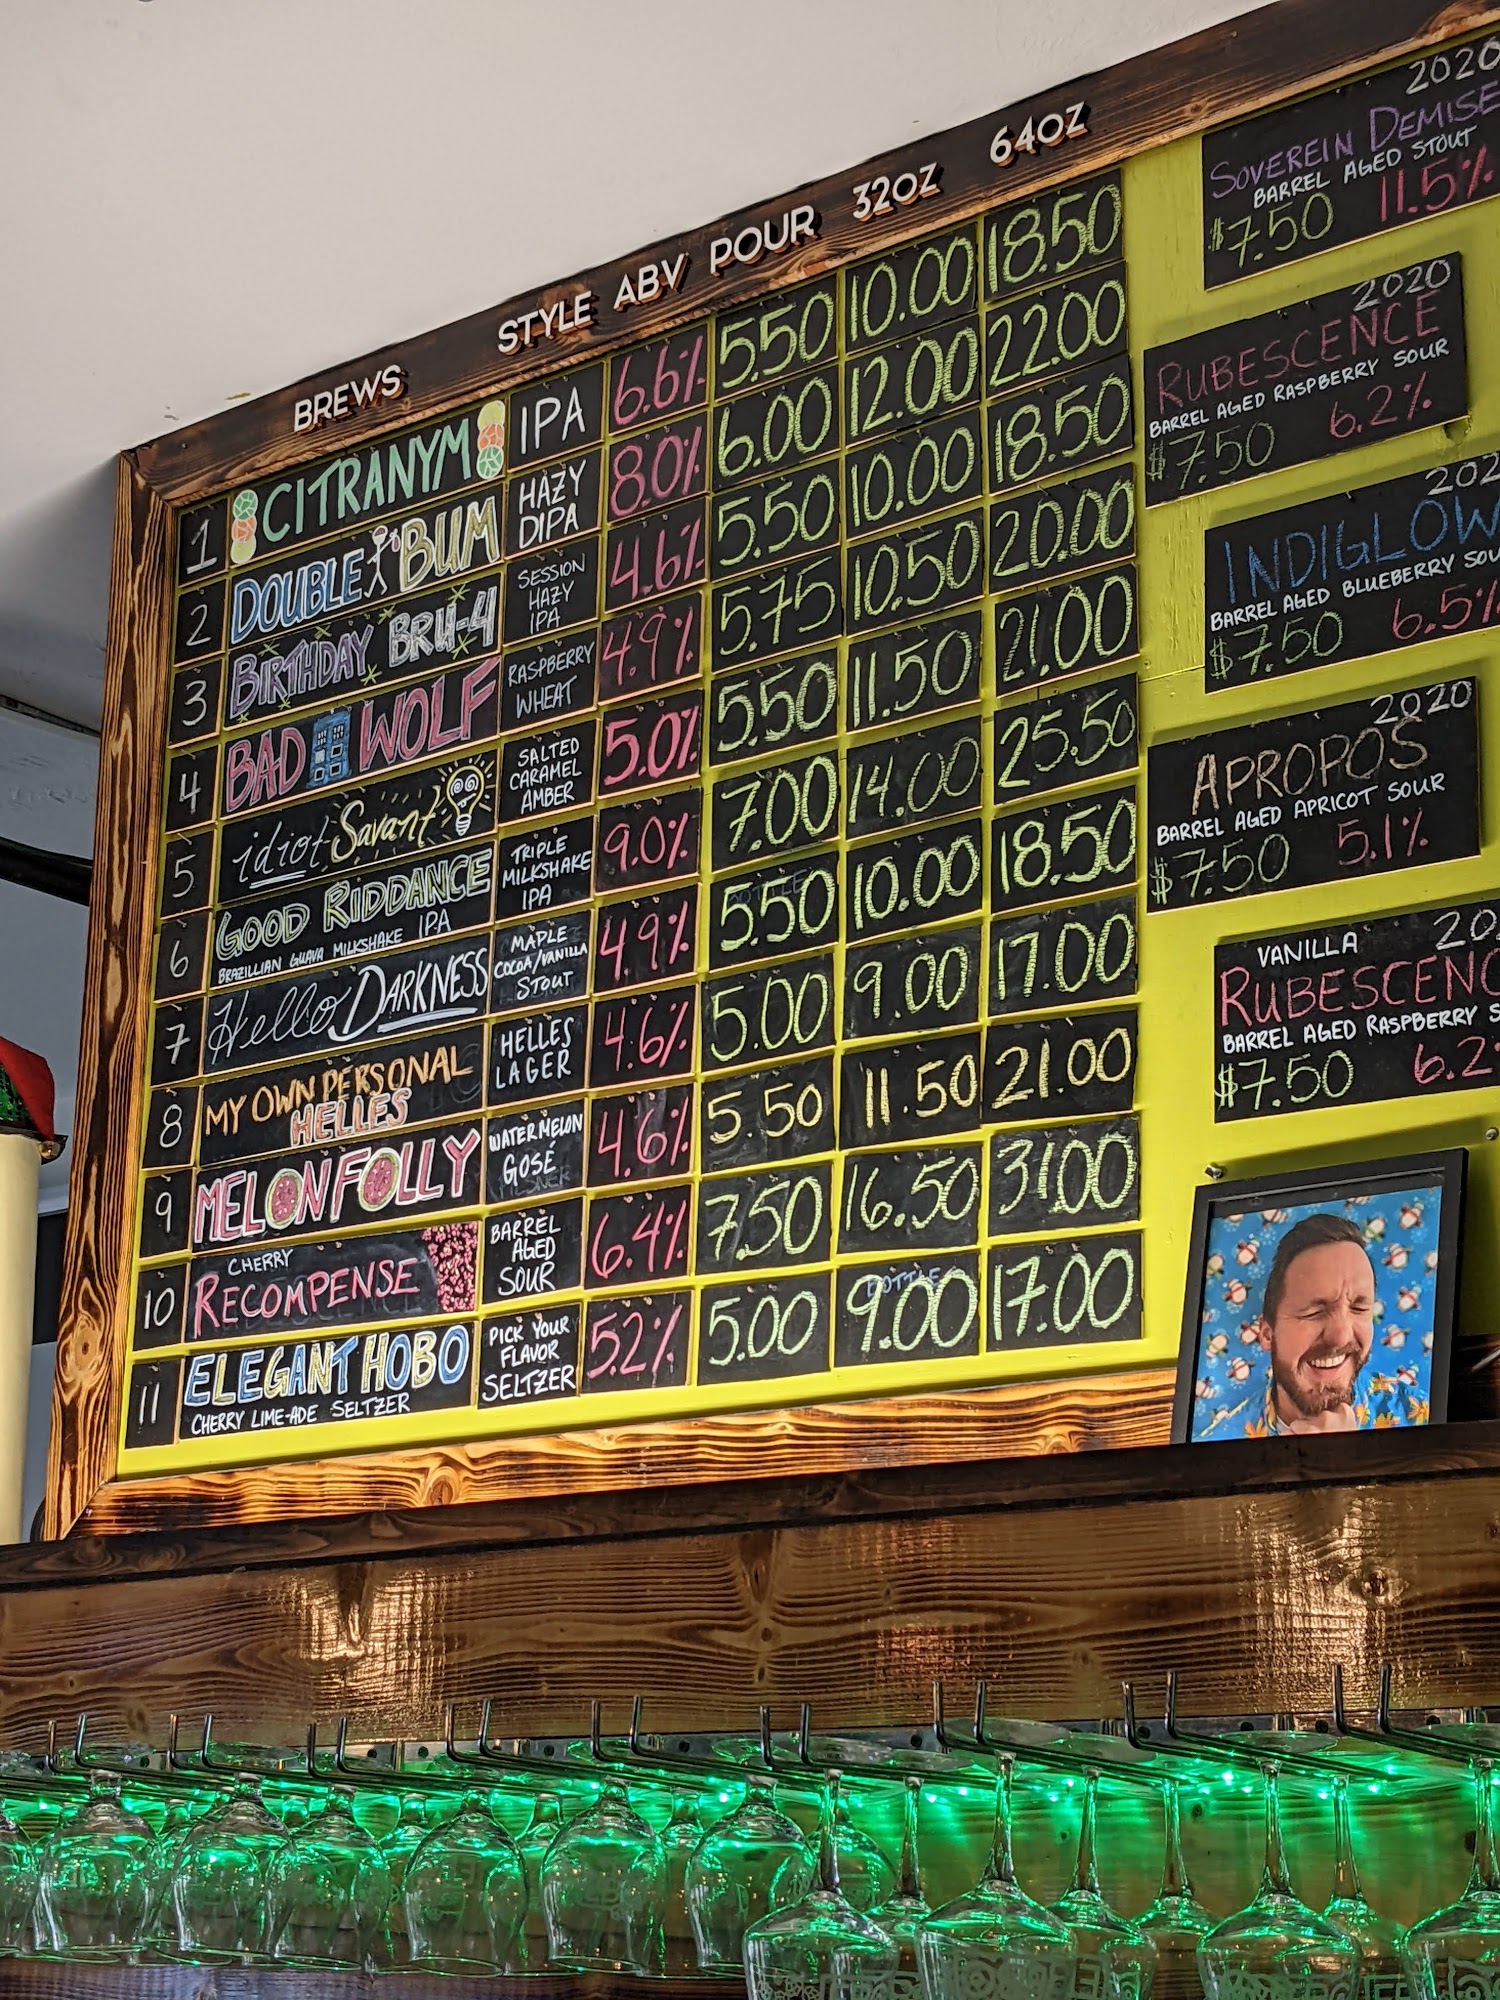 BREWS STYLE ABV POUR 32OZ 64OZ
1 CITRANYM IPA 6.6% 5.50 10.00 18.50
2 DOUBLE BUM HAZY DIPA 8.0% 6.00 12.00 22.00
3 BIRTHDAY BRU-4 SESSION HAZY IPA 4.6% 5.50 10.00 18.50
4 BAD WOLF RASPBERRY WHEAT 4.9% 5.75 10.50 20.00
5 idiot Savant SALTED CARAMEL AMBER 5.0% 5.50 11.50 21.00
6 GOOD RIDDANCE TRIPLE MILKSHAKE IPA 9.0% 7.00 14.00 25.50
BRAZILLIAN GUAVA MILKSHAKE IPA
7 Hello DARKNESS MAPLE COCOA/VANILLA STOUT 4.9% 5.50 10.00 18.50
8 MY OWN PERSONAL HELLES HELLES LAGER 4.6% 5.00 9.00 17.00
9 MELON FOLLY WATERMELON GOSÉ 4.6% 5.50 11.50 21.00
10 CHERRY RECOMPENSE BARREL AGED SOUR 6.4% 7.50 16.50 31.00
11 ELEGANT HOBO PICK YOUR FLAVOR SELTZER 5.2% 5.00 9.00 17.00
CHERRY LIME-ADE SELTZER
2020
SOVEREIN DEMISE
BARREL AGED STOUT
$7.50 11.5%
2020
RUBESCENCE
BARREL AGED RASPBERRY SOUR
$7.50 6.2%
202
INDIGLOW
BARREL AGED BLUEBERRY SOU
$7.50 6.5%
2020
APROPOS
BARREL AGED APRICOT SOUR
$7.50 5.1%
VANILLA 20
RUBESCENC
BARREL AGED RASPBERRY S
$7.50 6.2